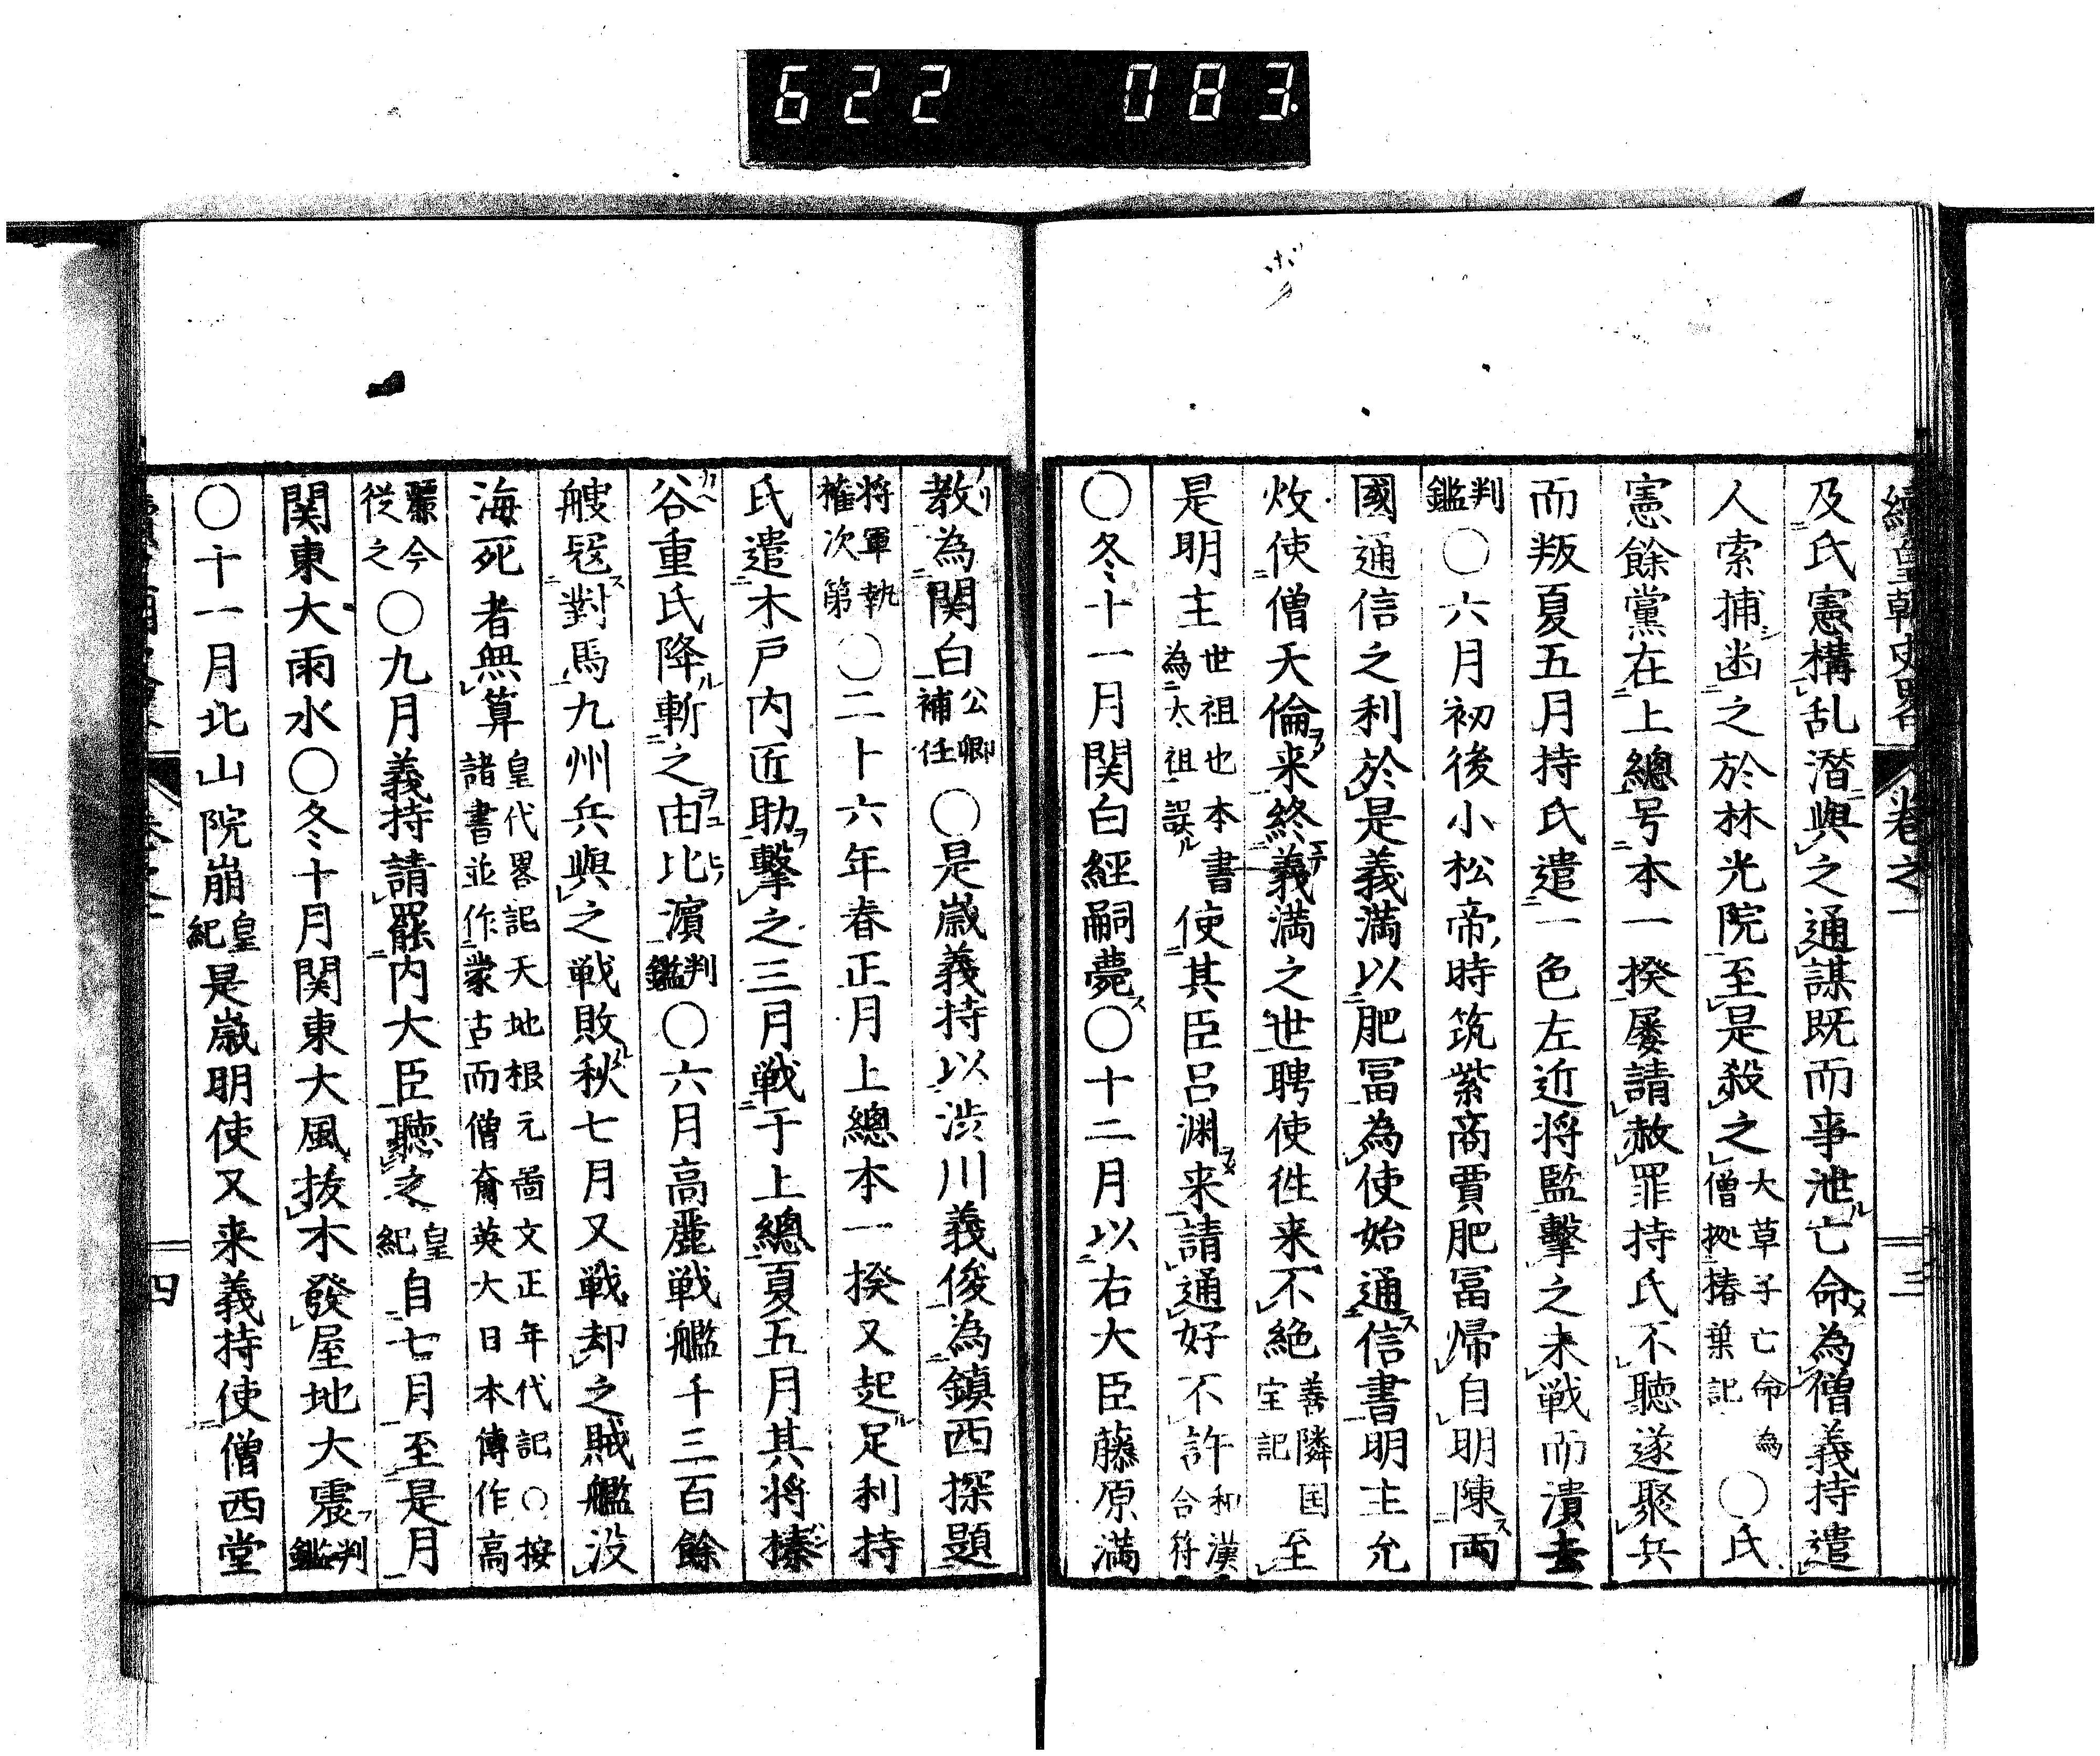 622 083.
續皇朝史畧 卷之一 三
及氏憲構乱潛與之通謀既而事泄亡命為僧義持遣
人索捕凾之於林光院至是殺之 大草子亡命為僧拠椿葉記 〇氏
憲餘黨在上總号本一揆屡請赦罪持氏不聴遂聚兵
而叛夏五月持氏遣一色左近将監擊之未戦而潰去
判鑑〇六月初後小松帝時筑紫商賈肥冨帰自明陳両
國通信之利於是義満以肥冨為使始通信書明主允
使僧天倫来終義満之世聘使徃来不絶 善隣国宝記 至
是明主 世祖也本書為太祖誤 使其臣呂渊来請通好不許 和漢合符
〇冬十一月関白經嗣薨〇十二月以右大臣藤原満
教為関白 公卿補任 〇是歳義持以渋川義俊為鎮西探題
将軍執権次第 〇二十六年春正月上總本一揆又起足利持
氏遣木戸内匠助擊之三月戦于上總夏五月其将榛
谷重氏降斬之由比濵 判鑑 〇六月高麗戦艦千三百餘
艘冦對馬九州兵與之戦敗秋七月又戦却之賊艦没
海死者無算 皇代畧記天地根元啚文正年代記〇按諸書並作蒙古而僧奝英大日本傳作高
麗今従之 〇九月義持請罷内大臣聴之 皇紀 自七月至是月
関東大雨水〇冬十月関東大風抜木發屋地大震 判鑑
〇十一月北山院崩 皇紀 是歳明使又来義持使僧西堂
四